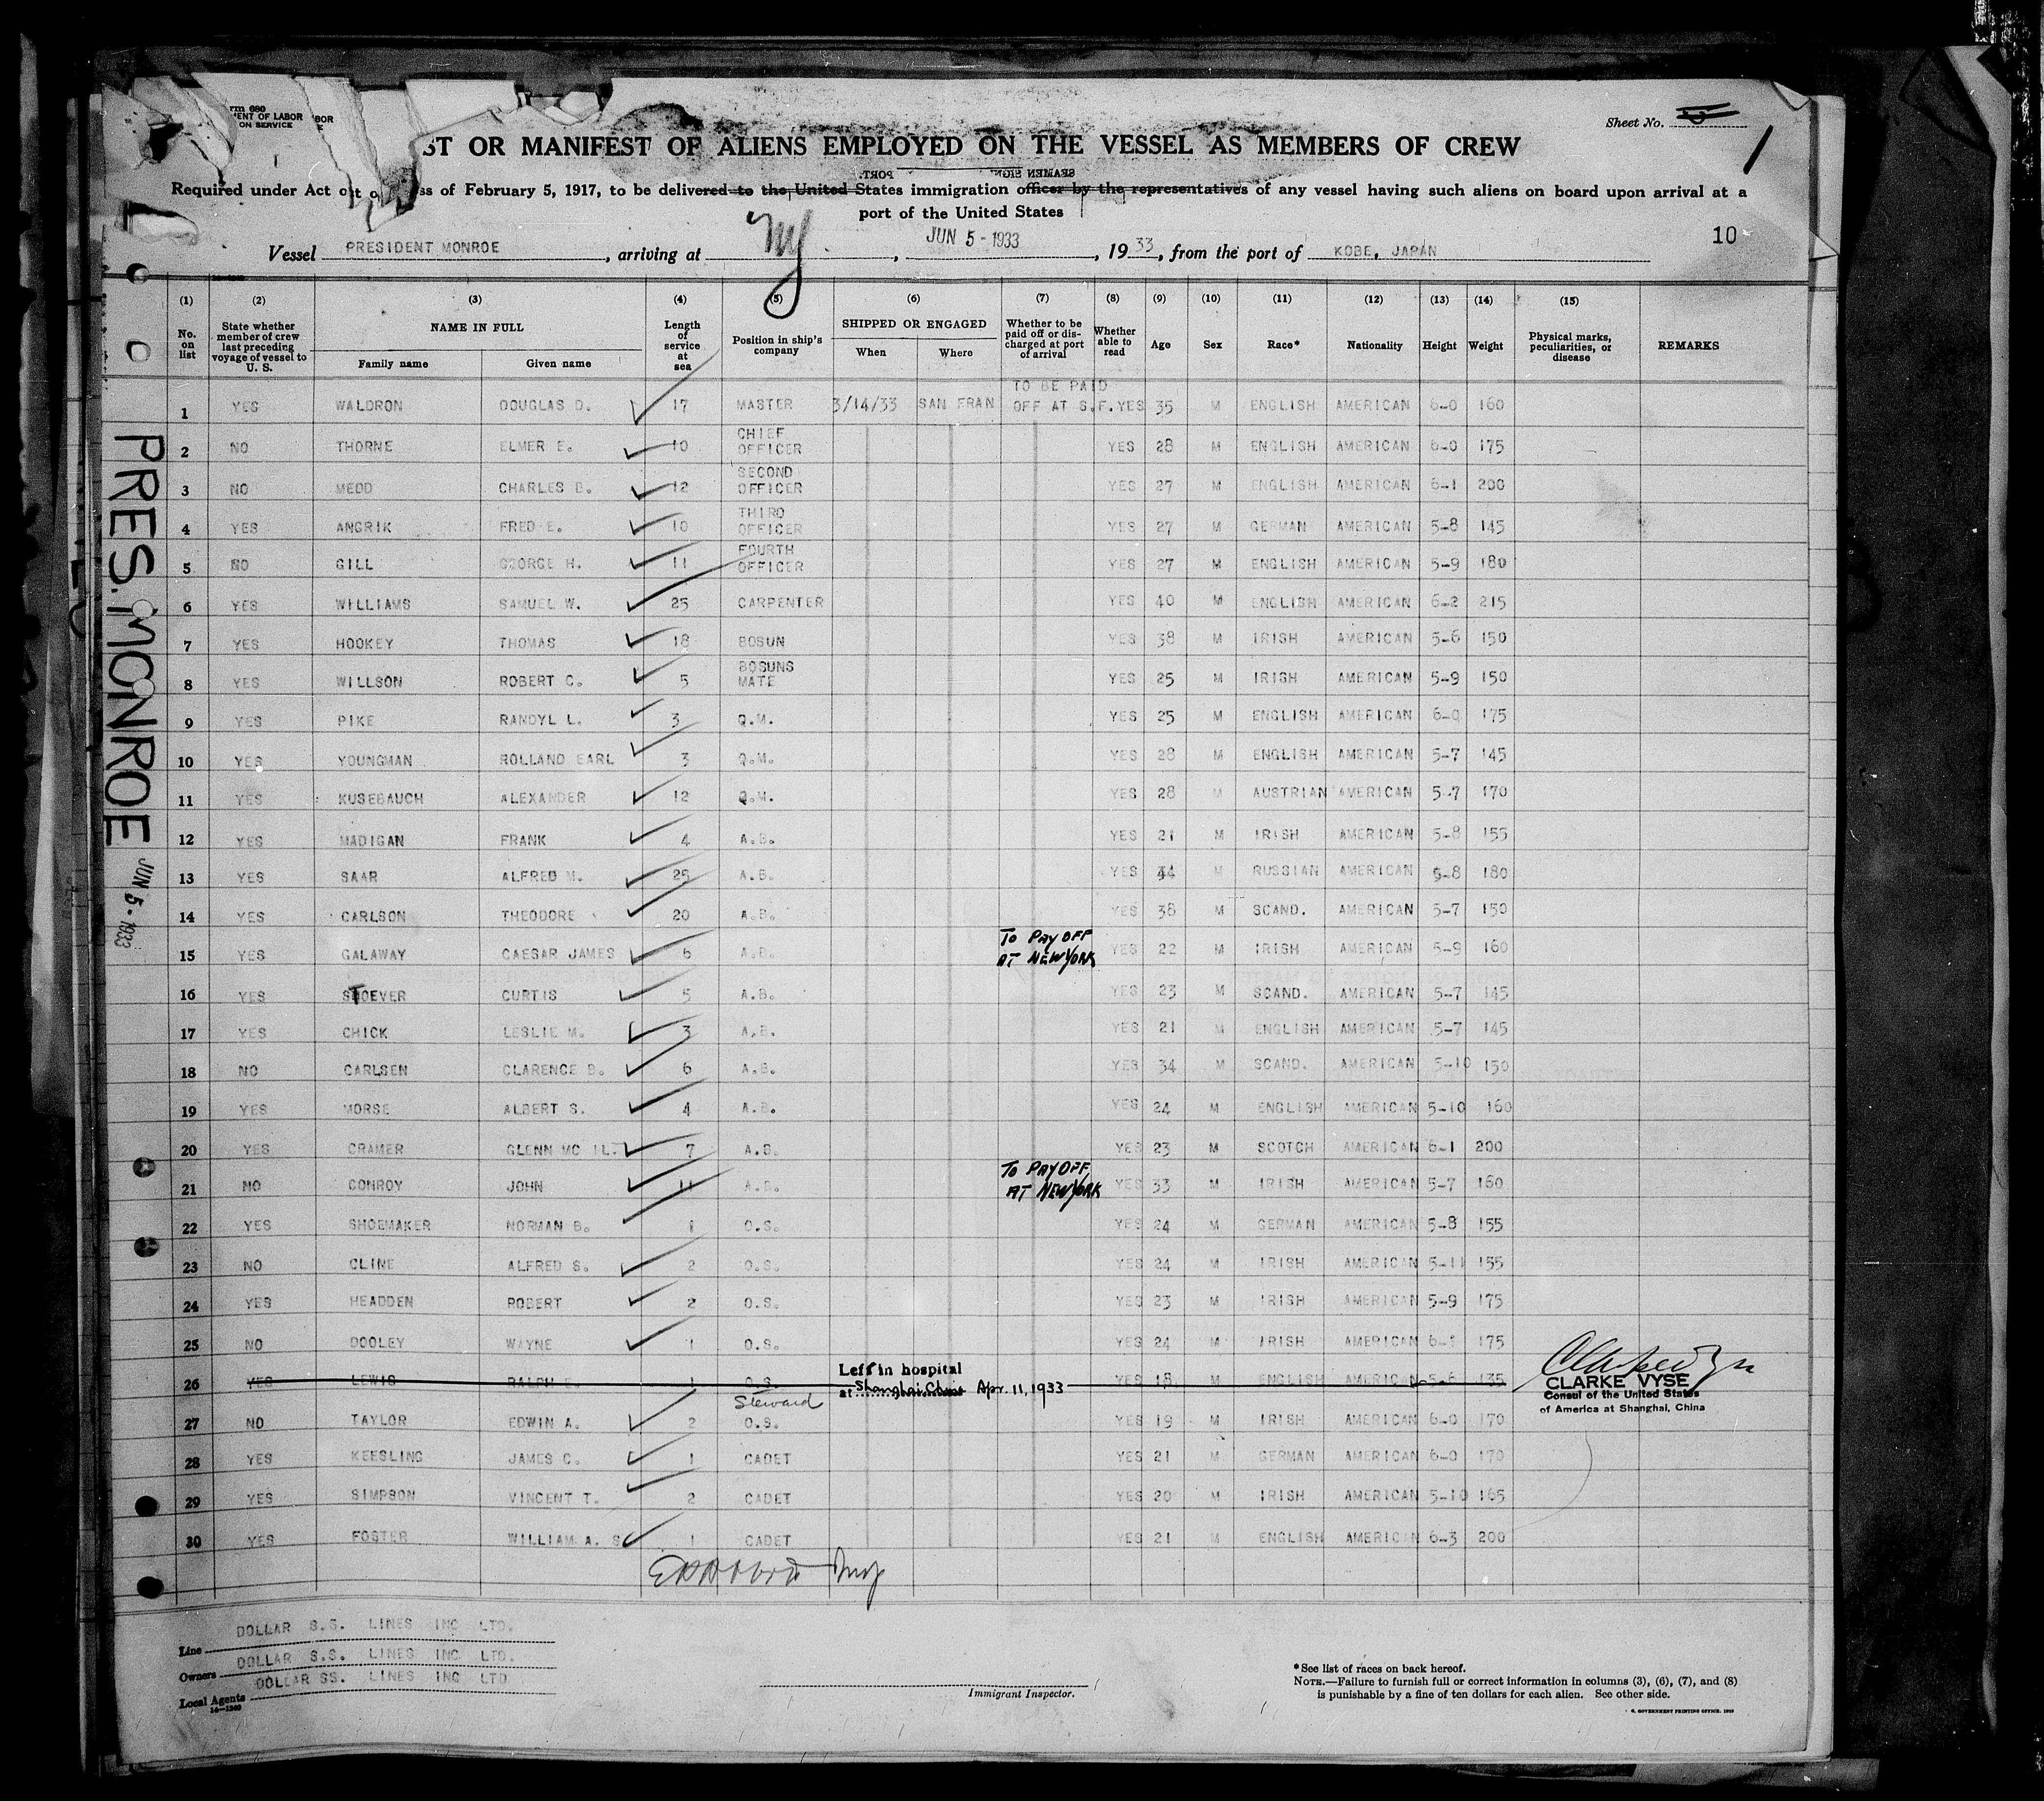 rm 680
MENT OF LABOR
ON SERVICE
Sheet No.
1
ST OR MANIFEST OF ALIENS EMPLOYED ON THE VESSEL AS MEMBERS OF CREW
Required under Act of ss of February 5, 1917, to be delivered to the United States immigration officer by the representatives of any vessel having such aliens on board upon arrival at a
port of the United States
10
Vessel PRESIDENT MONROE, arriving at NY, JUN 5 - 1933, 1933, from the port of KOBE, JAPAN
(1) (2) (3) (4) (5) (6) (7) (8) (9) (10) (11) (12) (13) (14) (15)
No. on list State whether member of crew last preceding voyage of vessel to U. S. NAME IN FULL Family name Given name Length of service at sea Position in ship's company SHIPPED OR ENGAGED When Where Whether to be paid off or discharged at port of arrival Whether able to read Age Sex Race* Nationality Height Weight Physical marks, peculiarities, or disease REMARKS
1 YES WALDRON DOUGLAS D. 17 MASTER 3/14/33 SAN FRAN TO BE PAID OFF AT S.F. YES 35 M ENGLISH AMERICAN 6-0 160
2 NO THORNE ELMER E. 10 CHIEF OFFICER YES 28 M ENGLISH AMERICAN 6-0 175
3 NO MEDD CHARLES B. 12 SECOND OFFICER YES 27 M ENGLISH AMERICAN 6-1 200
4 YES ANGRIK FRED E. 10 THIRD OFFICER YES 27 M GERMAN AMERICAN 5-8 145
5 NO GILL GEORGE H. 11 FOURTH OFFICER YES 27 M ENGLISH AMERICAN 5-9 180
6 YES WILLIAMS SAMUEL W. 25 CARPENTER YES 40 M ENGLISH AMERICAN 6-2 215
7 YES HOOKEY THOMAS 18 BOSUN YES 38 M IRISH AMERICAN 5-6 150
8 YES WILLSON ROBERT C. 5 BOSUNS MATE YES 25 M IRISH AMERICAN 5-9 150
9 YES PIKE RANDYL L. 3 Q.M. YES 25 M ENGLISH AMERICAN 6-0 175
10 YES YOUNGMAN ROLLAND EARL 3 Q.M. YES 28 M ENGLISH AMERICAN 5-7 145
11 YES KUSEBAUCH ALEXANDER 12 Q.M. YES 28 M AUSTRIAN AMERICAN 5-7 170
12 YES MADIGAN FRANK 4 A.B. YES 21 M IRISH AMERICAN 5-8 155
13 YES SAAR ALFRED M. 25 A.B. YES 44 M RUSSIAN AMERICAN 5-8 180
14 YES CARLSON THEODORE 20 A.B. YES 38 M SCAND. AMERICAN 5-7 150
15 YES GALAWAY CAESAR JAMES 6 A.B. TO PAY OFF AT NEW YORK YES 22 M IRISH AMERICAN 5-9 160
16 YES STOEVER CURTIS 5 A.B. YES 23 M SCAND. AMERICAN 5-7 145
17 YES CHICK LESLIE M. 3 A.B. YES 21 M ENGLISH AMERICAN 5-7 145
18 NO CARLSEN CLARENCE B. 6 A.B. YES 34 M SCAND. AMERICAN 5-10 150
19 YES MORSE ALBERT S. 4 A.B. YES 24 M ENGLISH AMERICAN 5-10 160
20 YES CRAMER GLENN MC 7 A.B. YES 23 M SCOTCH AMERICAN 6-1 200
21 NO CONROY JOHN 11 A.B. TO PAY OFF AT NEW YORK YES 33 M IRISH AMERICAN 5-7 160
22 YES SHOEMAKER NORMAN B. 1 O.S. YES 24 M GERMAN AMERICAN 5-8 155
23 NO CLINE ALFRED S. 2 O.S. YES 24 M IRISH AMERICAN 5-11 155
24 YES HEADDEN ROBERT 2 O.S. YES 23 M IRISH AMERICAN 5-9 175
25 NO DOOLEY WAYNE 1 O.S. YES 24 M IRISH AMERICAN 6-1 175
26 YES LEWIS RALPH E. 1 O.S. Left in hospital at Shanghai, China Apr. 11, 1933 YES 18 M ENGLISH AMERICAN 5-6 135
CLARKE VYSE
Consul of the United States
of America at Shanghai, China
27 NO TAYLOR EDWIN A. 2 Steward O.S. YES 19 M IRISH AMERICAN 6-0 170
28 YES KEESLING JAMES C. 1 CADET YES 21 M GERMAN AMERICAN 6-0 170
29 YES SIMPSON VINCENT T. 2 CADET YES 20 M IRISH AMERICAN 5-10 165
30 YES FOSTER WILLIAM A. S 1 CADET YES 21 M ENGLISH AMERICAN 6-3 200
PRES. MONROE
JUN 5 - 1933
Line DOLLAR S.S. LINES INC LTD.
Owners DOLLAR S.S. LINES INC LTD.
Local Agents DOLLAR SS. LINES INC LTD
14-1240
Immigrant Inspector.
*See list of races on back hereof.
NOTE.—Failure to furnish full or correct information in columns (3), (6), (7), and (8)
is punishable by a fine of ten dollars for each alien. See other side.
GOVERNMENT PRINTING OFFICE